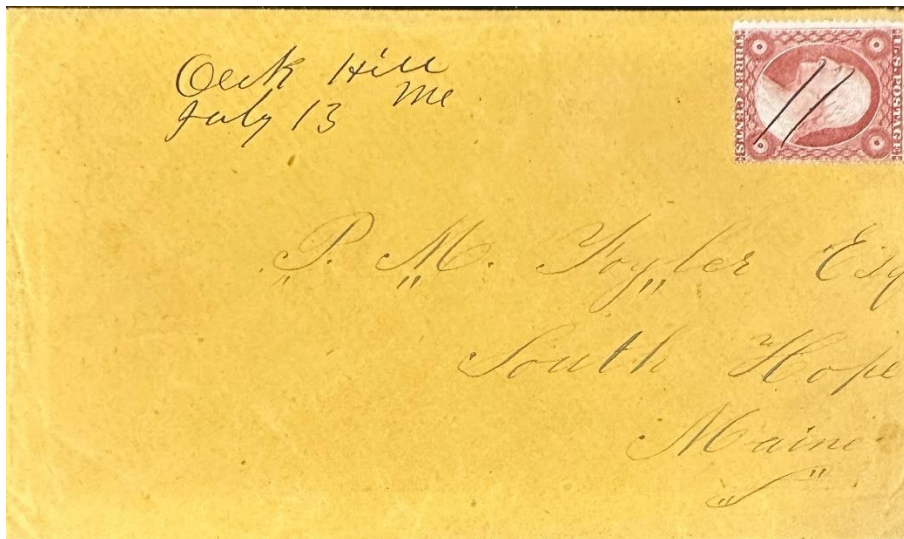 Oak Hill
Me
July 13
U.S. POSTAGE
THREE CENTS
P. M. Fogler Esq
South Hope
Maine